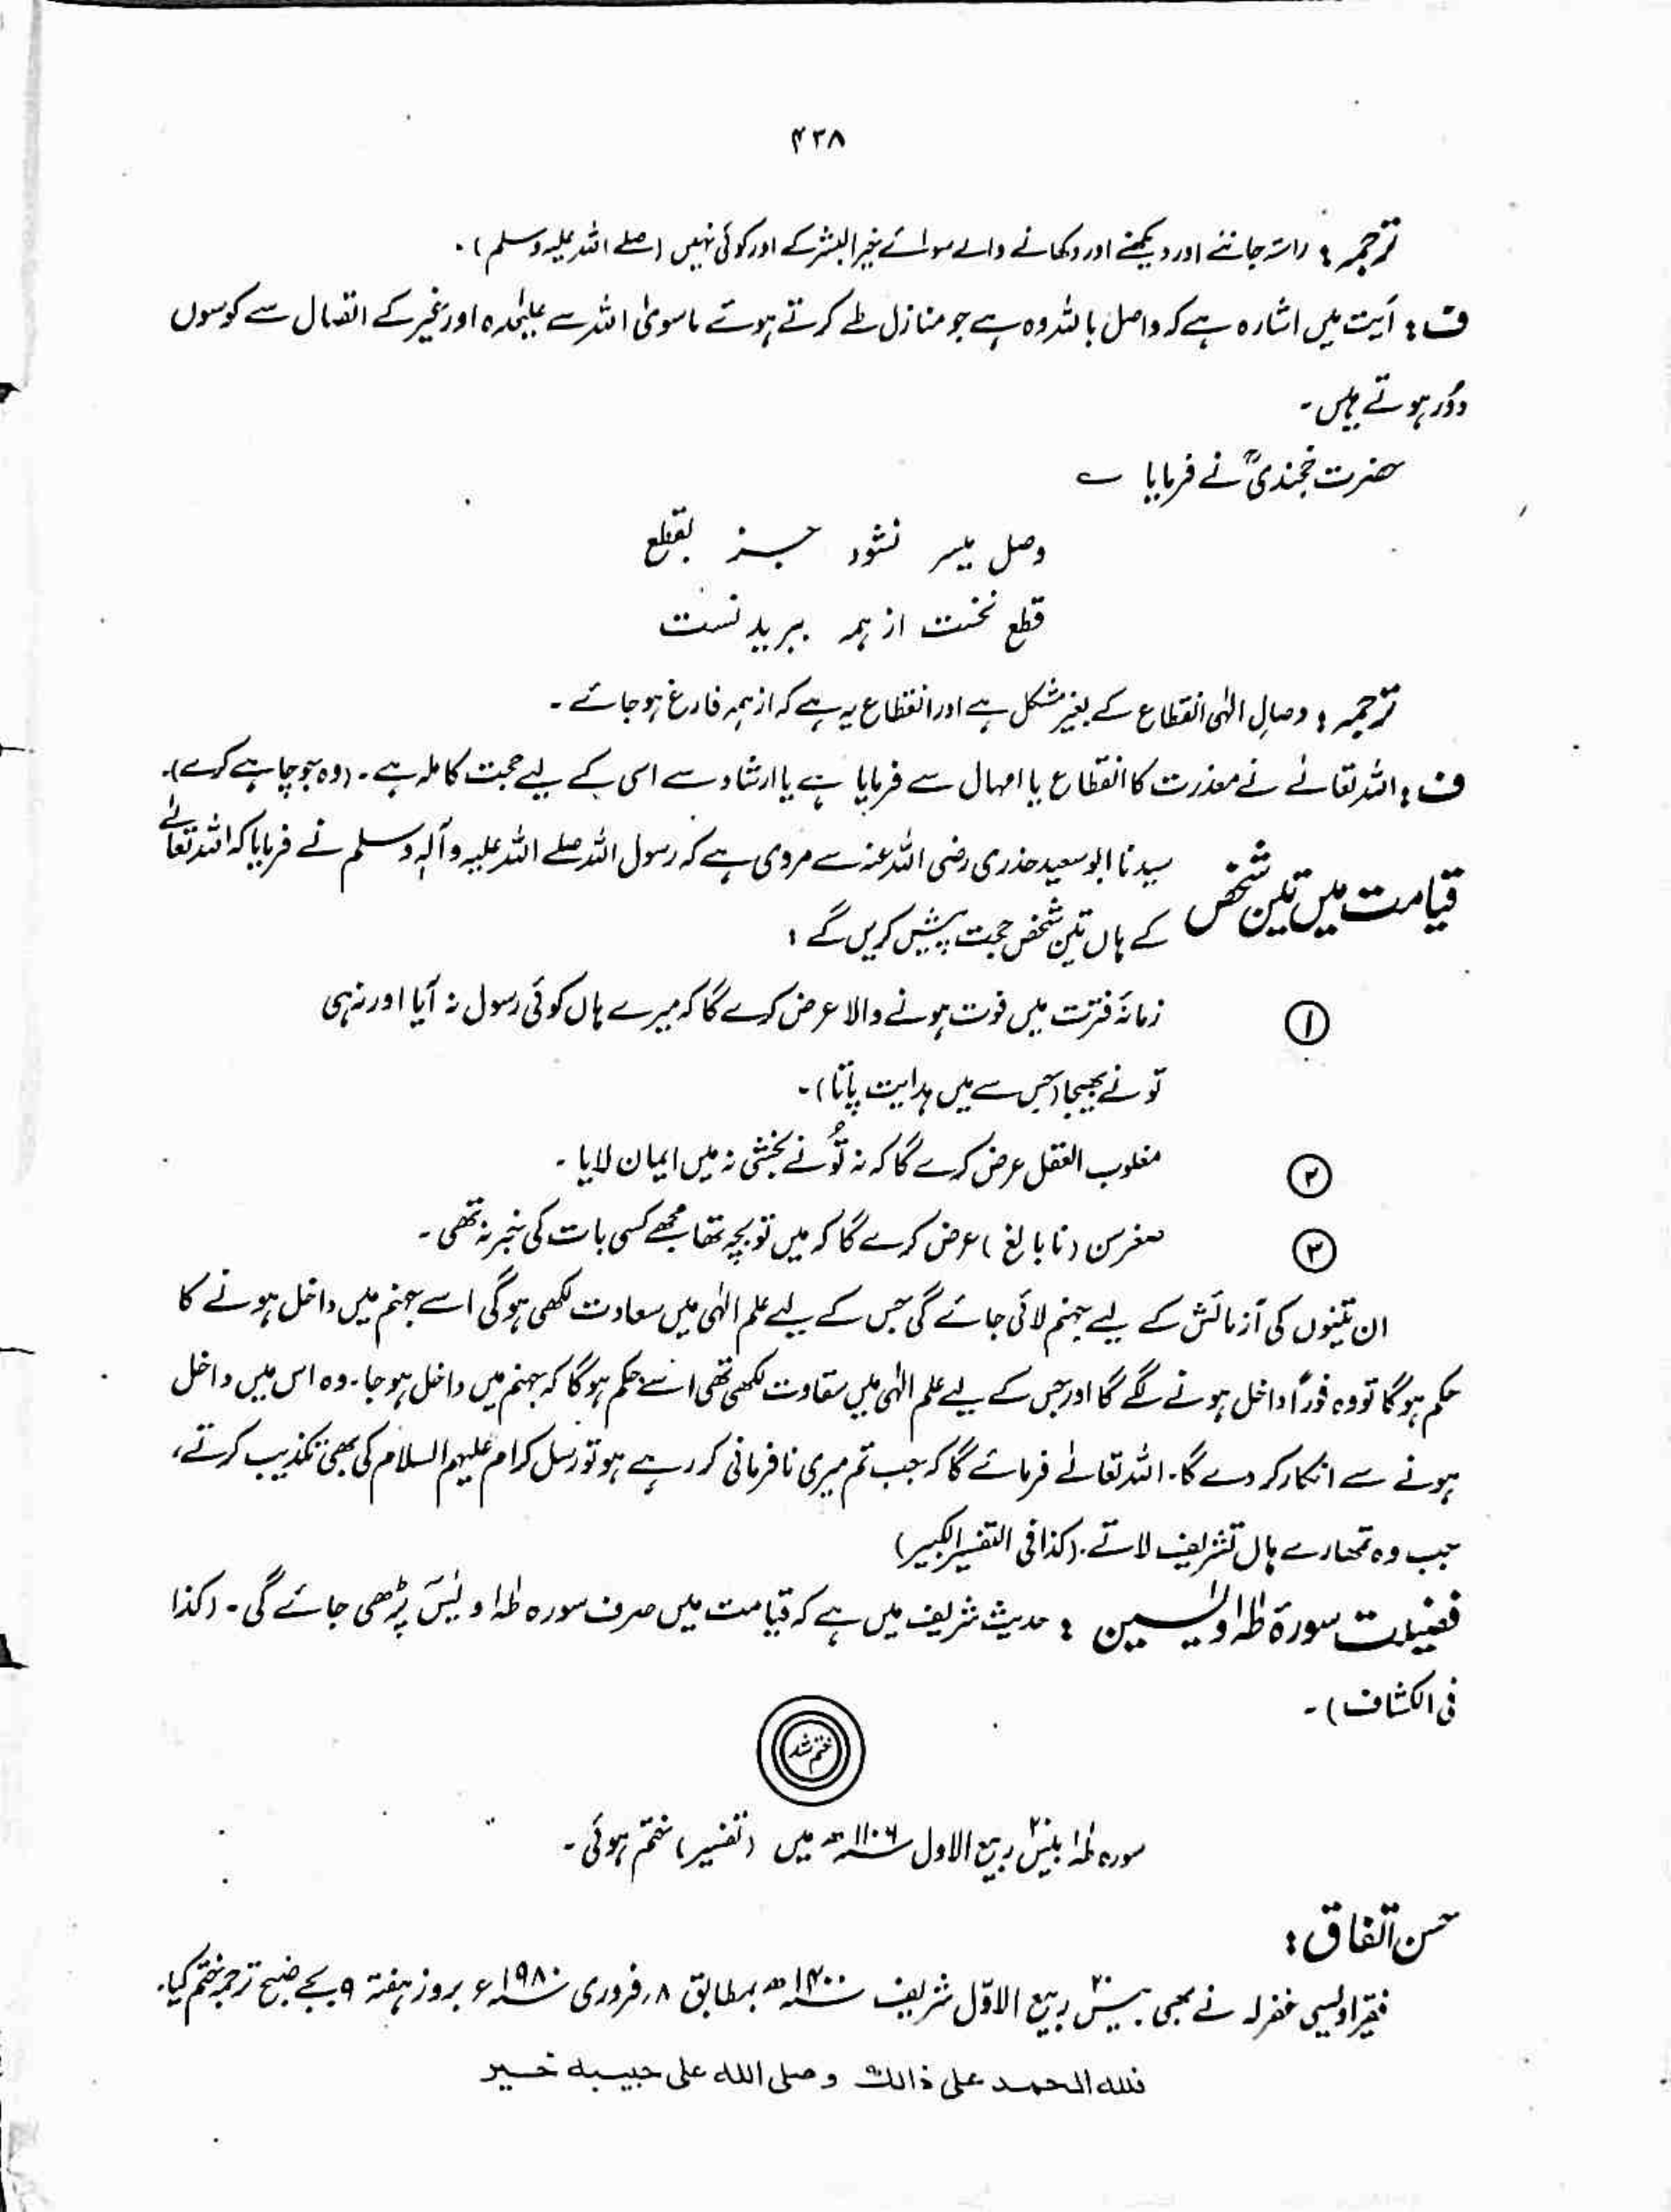 ۴۳۸
ترجمہ : راستہ جاننے اور دیکھنے اور دکھانے والے سوائے خیر البشر کے اور کوئی نہیں (صلے اللہ علیہ وسلم)۔
ف : آیت میں اشارہ ہے کہ واصل باللہ وہ ہے جو منازل طے کرتے ہوئے ماسویٰ اللہ سے علیٰحدہ اور غیر کے اتصال سے کوسوں
دُور ہوتے ہیں۔
حضرت خجندیؒ نے فرمایا ؎
وصل میسر نشود جز بقطع
قطع نخست از ہمہ ببریدنست
ترجمہ : وصالِ الٰہی انقطاع کے بغیر مشکل ہے اور انقطاع یہ ہے کہ از ہمہ فارغ ہو جائے۔
ف : اللہ تعالےٰ نے معذرت کا انقطاع یا امہال سے فرمایا ہے یا ارشاد سے اسی کے لیے حجت کاملہ ہے۔ (وہ جو چاہے کرے)۔
قیامت میں تین شخص سیدنا ابو سعید خدری رضی اللہ عنہ سے مروی ہے کہ رسول اللہ صلے اللہ علیہ وآلہٖ وسلم نے فرمایا کہ اللہ تعالےٰ
کے ہاں تین شخص حجت پیش کریں گے :
① زمانۂ فترت میں فوت ہونے والا عرض کرے گا کہ میرے ہاں کوئی رسول نہ آیا اور نہ ہی
تو نے بھیجا (جس سے میں ہدایت پاتا)۔
② مغلوب العقل عرض کرے گا کہ نہ تُو نے بخشی نہ میں ایمان لایا۔
③ صغر سن (نابالغ) عرض کرے گا کہ میں تو بچہ تھا مجھے کسی بات کی خبر نہ تھی۔
ان تینوں کی آزمائش کے لیے جہنم لائی جائے گی جس کے لیے علم الٰہی میں سعادت لکھی ہوگی اسے جہنم میں داخل ہونے کا
حکم ہوگا تو وہ فوراً داخل ہونے لگے گا اور جس کے لیے علم الٰہی میں شقاوت لکھی تھی اسے حکم ہوگا کہ جہنم میں داخل ہو جا۔ وہ اس میں داخل
ہونے سے انکار کر دے گا۔ اللہ تعالےٰ فرمائے گا کہ جب تم میری نافرمانی کر رہے ہو تو رسل کرام علیہم السلام کی بھی تکذیب کرتے،
جب وہ تمھارے ہاں تشریف لاتے۔ (کذا فی التفسیر الکبیر)
فضیلت سورۂ طٰہٰ و یٰسین : حدیث شریف میں ہے کہ قیامت میں صرف سورہ طٰہٰ و یٰسٓ پڑھی جائے گی۔ (کذا
فی الکشاف)۔
ختم شد
سورہ طٰہٰ بیس ۲۰ ربیع الاول ۱۱۰۶ھ میں (تفسیر) ختم ہوئی۔
حسن اتفاق :
فقیر اویسی غفرلہ نے بھی بیس ۲۰ ربیع الاوّل شریف ۱۴۰۰ھ بمطابق ۸ فروری ۱۹۸۰ء بروز ہفتہ ۹ بجے صبح ترجمہ ختم کیا۔
فللہ الحمد علی ذالک وصلی اللہ علی حبیبہ خیر